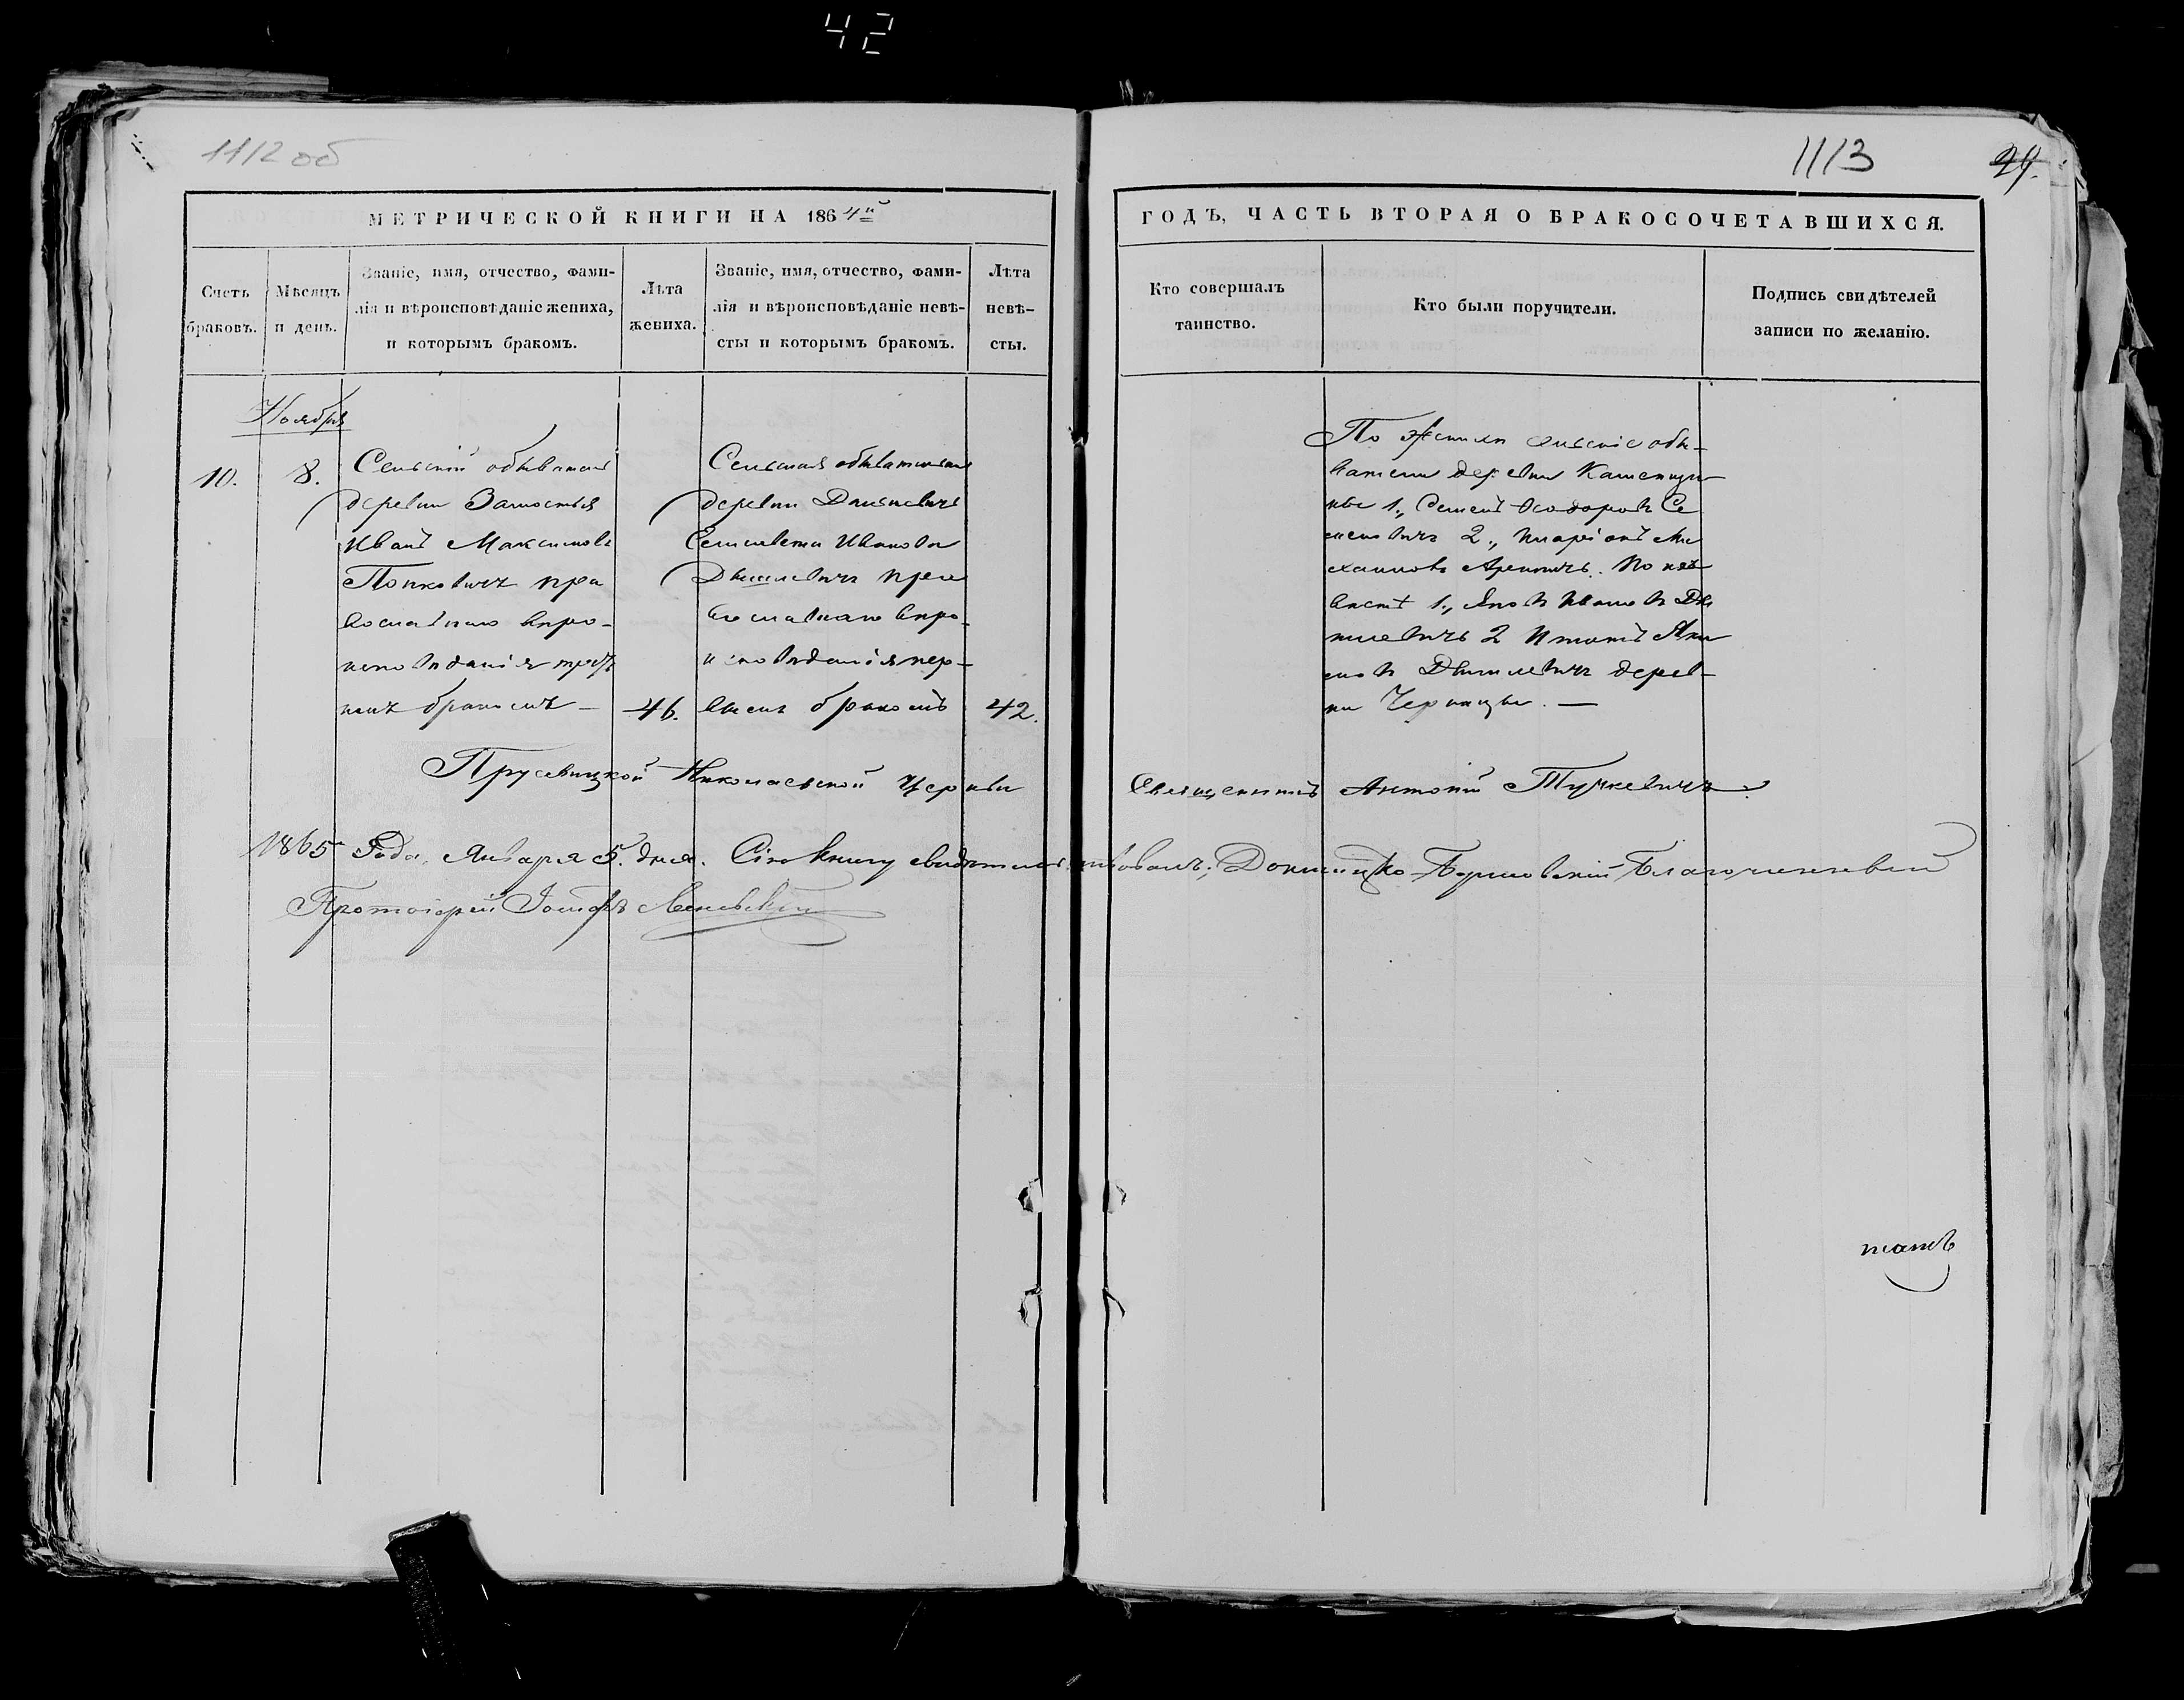 42
1112 об
1113
24.
МЕТРИЧЕСКОЙ КНИГИ НА 1864й
ГОДЪ, ЧАСТЬ ВТОРАЯ О БРАКОСОЧЕТАВШИХСЯ.
Счетъ
браковъ.
Мѣсяцъ
и день.
Званіе, имя, отчество, фами-
лія и вѣроисповѣданіе жениха,
и которымъ бракомъ.
Лѣта
жениха.
Званіе, имя, отчество, фами-
лія и вѣроисповѣданіе невѣ-
сты и которымъ бракомъ.
Лѣта
невѣ-
сты.
Кто совершалъ
таинство.
Кто были поручители.
Подпись свидѣтелей
записи по желанію.
Ноября
10.
8.
Сельскій обыватель
деревни Замостья
Иванъ Максимовъ
Попковичъ пра
вославнаго вѣро-
исповѣданія треть
имъ бракомъ —
46.
Сельская обывательни
деревни
Елисавета Иванова
православнаго вѣро-
исповѣданія пер-
вымъ бракомъ
42.
По женихѣ сельскіе обы-
ватели деревни
1., Семенъ Ѳеодоровъ Се
меновичъ 2., Иларіонъ Ми
хаиловъ По не
вѣстѣ 1., Яковъ Ивановъ
2 Игнатъ Яки
мовъ дерев-
ни Черницы. —
Прусевицкой Николаевской Церкви
Священникъ Антоній Тучкевичъ
1865 Года, Января 5. дня. Сію книгу свидѣтельствовалъ: Докшицко-Борисовскій Благочинный
Протоіерей Іосифъ